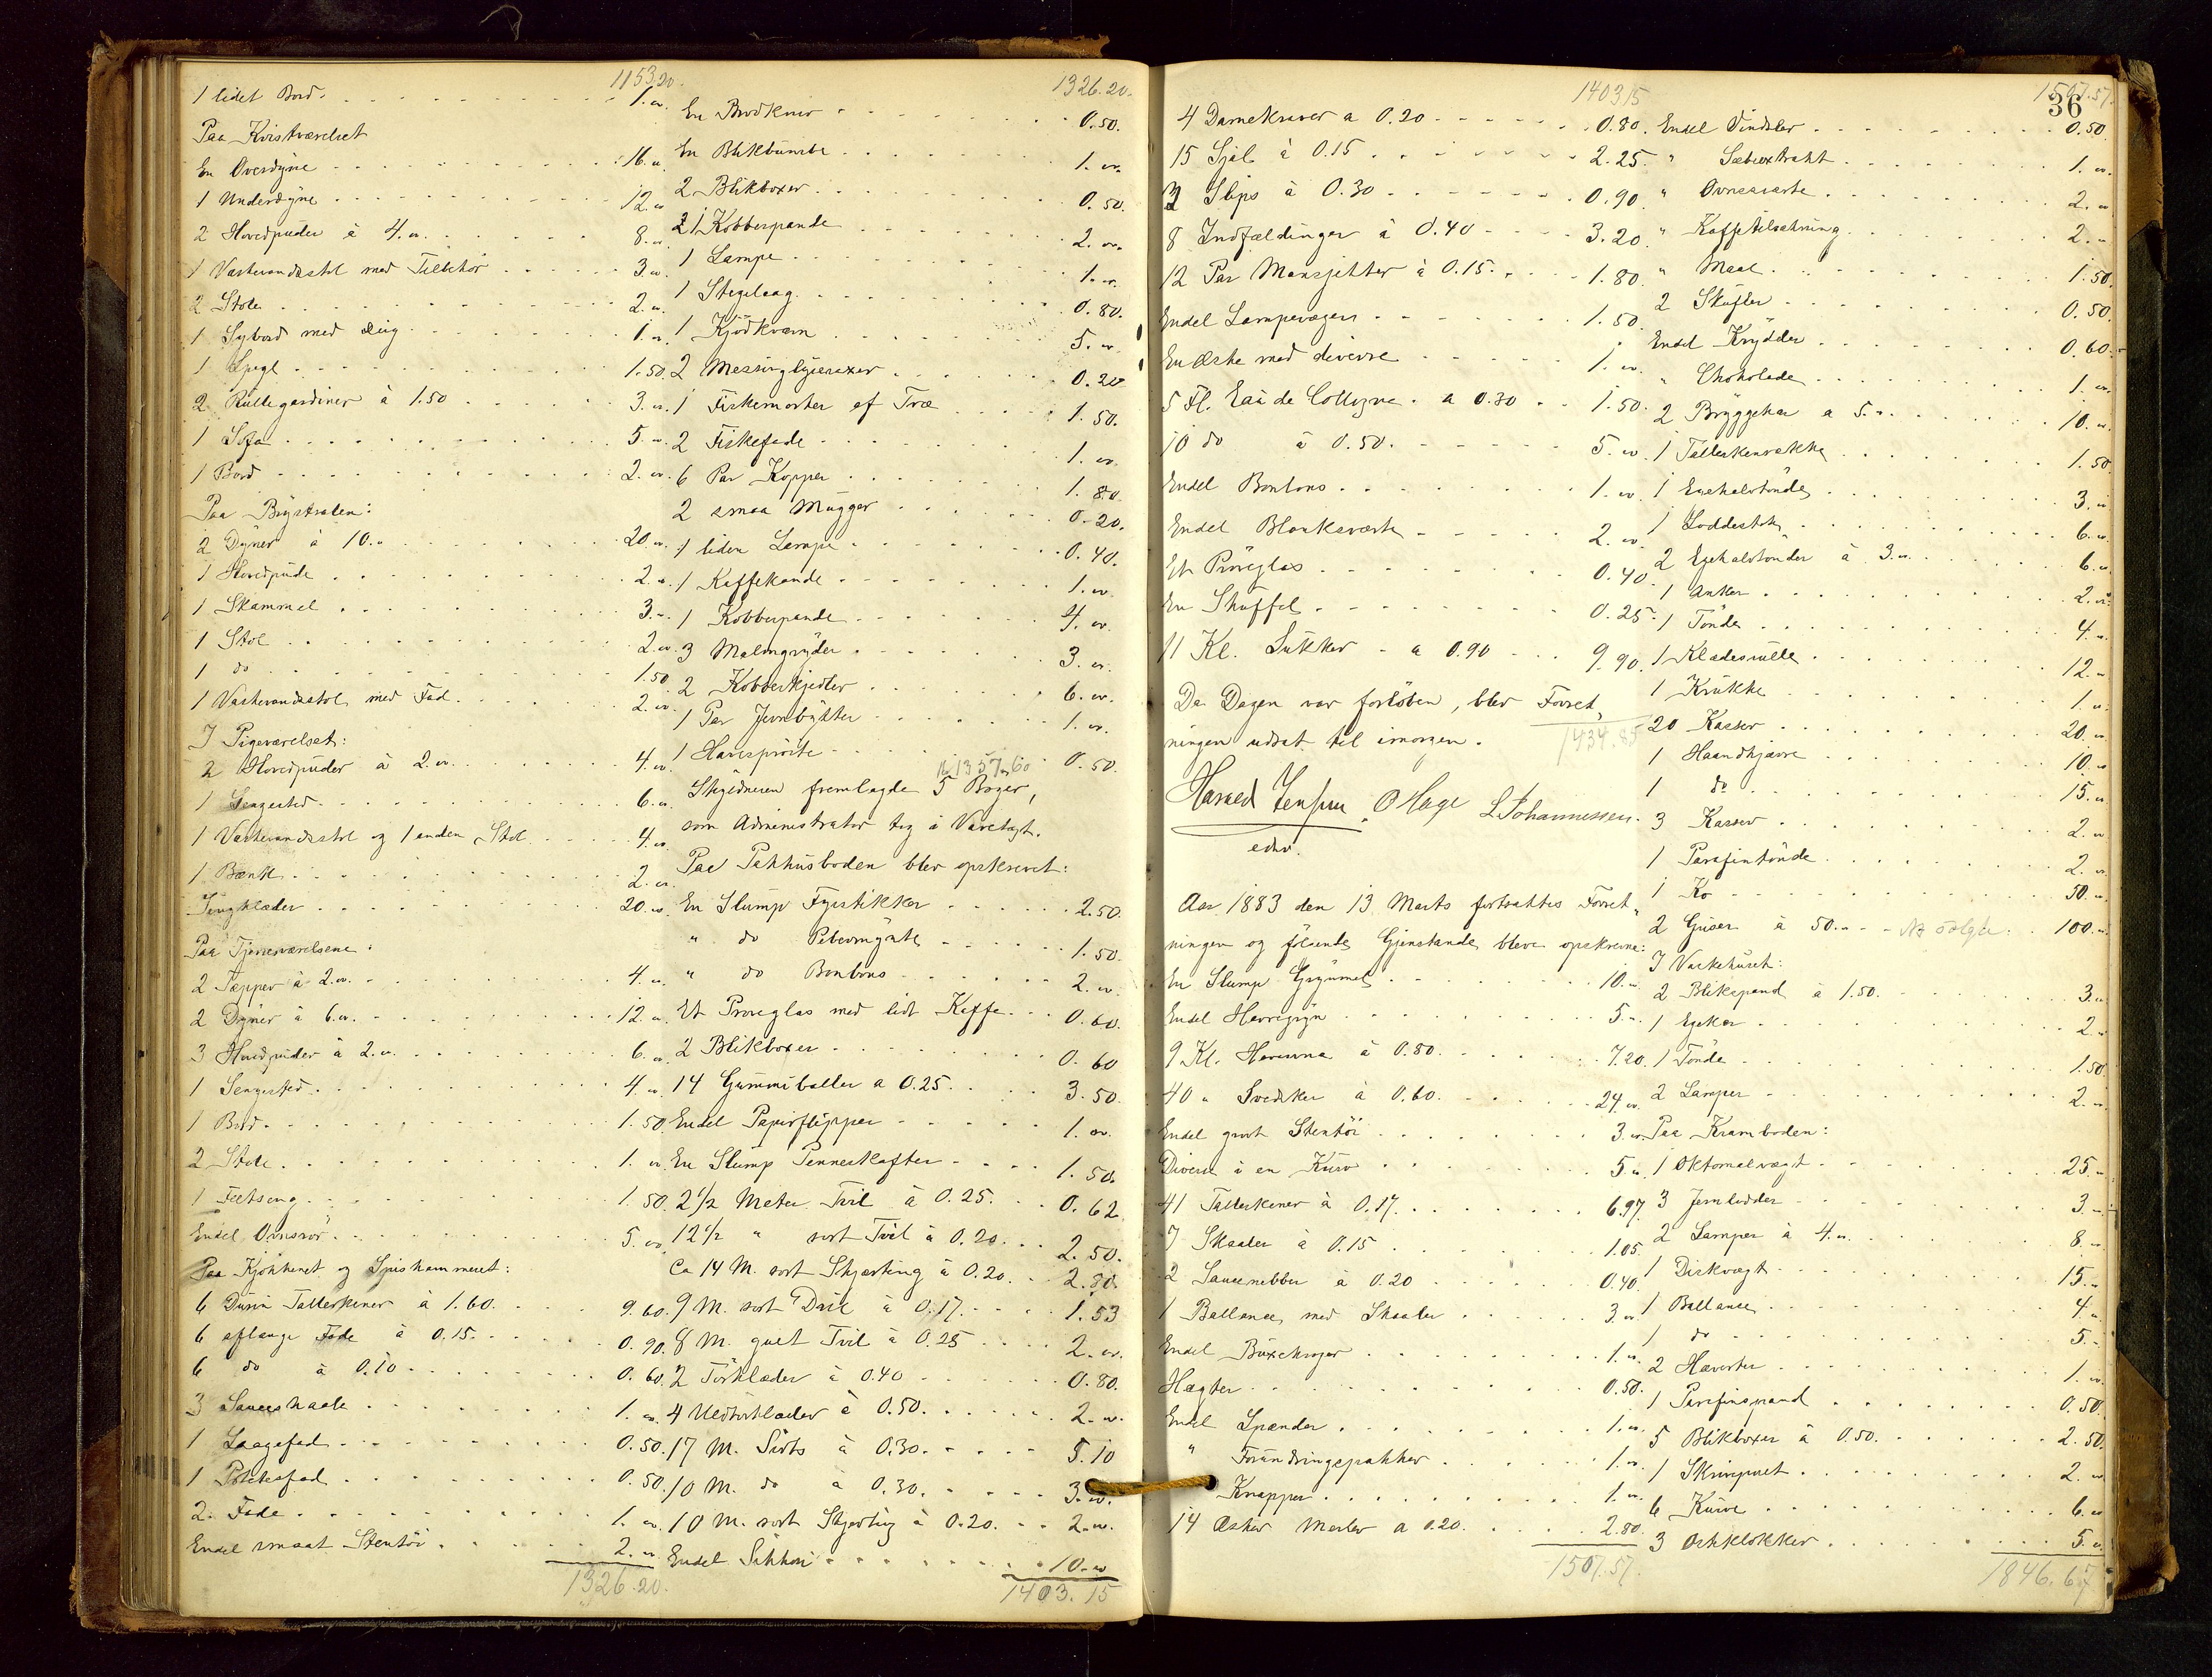 1153.20.
1 lidet Bord. 1. "
Paa Kvistværelset
En Overdyne 16. "
1 Underdyne 12. "
2 Hovedpuder à 4. " 8. "
1 Vaskevandsstol med Tilbehör 3. "
2 Stole 2. "
1 Sybord med 1. "
1 Speyl 1.50
2 Rullegardiner à 1.50 3. "
1 Sofa 5. "
1 Bord 2. "
Paa Brystsalen:
2 Dyner à 10. " 20. "
1 Hovedpude 2. "
1 Skammel 3. "
1 Stol 2. "
1 do 1.50
1 Vaskevandsstol med Fad 2. "
I Pigeværelset:
2 Hovedpuder à 2. " 4. "
1 Sengested 6. "
1 Vaskevandsstol og 1 anden Stol 4. "
1 Bænk 2. "
Sengklæder 20. "
Paa Tjenerværelsene:
2 Tæpper à 2. " 4. "
2 Dyner à 6. " 12. "
3 Hovedpuder à 2. " 6. "
1 Sengested 4. "
1 Bord 1.50
2 Stole 1. "
1 Feltseng 1.50
Endel Ovnsrör 5. "
Paa Kjökkenet og Spiskammeret:
6 Dusin Tallerkener à 1.60. 9.60.
6 aflange Fade à 0.15. 0.90.
6 do à 0.10 0.60.
3 Sauceskaale 1. "
1 Laagefad 0.50.
1 Potetesfad 0.50.
2 Fade 1. "
Endel smaat Stentöi 2. "
1326.20.
1326.20.
En Brödkniv 0.50.
En Blikbumbe 1. "
2 Blikboxer 0.50.
1 Kobberpande 2. "
1 Lampe 1. "
1 Stegelaag 0.80.
1 Kjödkværn 5. "
2 Messinglysesaxer 0.20
1 Fiskemorter af Træ 1.50.
2 Fiskefade 1. "
6 Par Kopper 1.80.
2 smaa Mugger 0.20.
1 liden Lampe 0.40.
1 Kaffekande 1. "
1 Kobberpande 4. "
3 Malmgryder 3. "
2 Kobberkjedler 6. "
1 Par Jernbötter 1. "
1 Havesprøite 0.50.
1357.60
Skyldneren fremlagde 5 Bøger,
som Administrator tog i Varetægt.
Paa Pakhusboden blev opskrevet:
En Slump Fyrstikker 2.50.
" do Pebermynte 1.50.
" do Bonbons 2. "
Et Prøveglas med lidt Kaffe 0.60.
2 Blikboxer 0.60
14 Gummiballer a 0.25. 3.50
Endel Papirflipper 1. "
En Slump Penneskafter 1.50.
2 1/2 Meter Tvil à 0.25. 0.62
12 1/2 " sort Tvil à 0.20. 2.50.
Ca 14 M. sort Skjorting à 0.20. 2.80.
9 M. sort Dril à 0.17. 1.53
8 M. guel Tvil à 0.25 2. "
2 Törklæder à 0.40 0.80.
4 Uldtörklæder à 0.50. 2. "
17 M. Sirts à 0.30. 5.10
10 M. do à 0.30. 3. "
10 M. sort Skjorting à 0.20. 2. "
Endel Sikkori 10. "
1403.15
1403.15
4 Damekraver a 0.20 0.80.
15 Sjal à 0.15 2.25.
3 Slips à 0.30 0.90.
8 Indfældinger à 0.40 3.20.
12 Par Mansjetter à 0.15. 1.80.
Endel Lampevæger 1.50.
En Æske med diverse 1. "
5 Fl. Eau de Cologne a 0.30 1.50.
10 do à 0.50. 5. "
Endel Bonbons 1. "
Endel Blanksværte 2. "
Et Prøveglas 0.40.
En Skuffel 0.25.
11 Kl. Sukker a 0.90 9.90.
Da Dagen var forløben, blev Forret-
ningen udsat til imorgen. 1434.85
Harald Jensen OHage L Johannessen.
edsv.
Aar 1883 den 13 Marts fortsattes Forret-
ningen og følgende Gjenstande bleve opskrevne:
En Slump Grynmel 10. "
Endel Havregryn 5. "
9 Kl. à 0.80. 7.20.
40 " Svedsker à 0.60. 24. "
Endel grovt Stentöi 3. "
Diverse i en Kurv 5. "
41 Tallerkener à 0.17. 6.97
7 Skaaler à 0.15 1.05.
2 Saucenebber à 0.20 0.40.
1 Ballance med Skaaler 3. "
Endel Buxeknapper 1. "
Hægter 0.50.
Endel Spænder 1. "
" Forundringspakker 1. "
Knapper 1. "
14 Æsker Merler a 0.20. 2.80.
1507.57.
1507.57.
36
Endel Vindsler 0.50
" Sæbeextrakt 1. "
" Ovnsværte 2. "
" Kaffetilsætning 2. "
" Maal 1.50.
2 Skufler 0.50.
Endel Krydder 0.60.
" Chokolade 1. "
2 Bryggekar a 5. " 10. "
1 Tallerkenrække 1.50
1 Egehalvtønde 3. "
1 Loddestok 6. "
2 Egehalvtønder à 3. " 6. "
1 Anker 2. "
1 Tönde 4. "
1 Klædesrulle 12. "
1 Krukke 1. "
20 Kasser 20. "
1 Haandkjærre 10. "
1 do 15. "
3 Kasser 2. "
1 Parafintönde 2. "
1 Ko 50. "
2 Griser à 50. " solgte 100. "
I Vaskehuset:
2 Blikspand à 1.50. 3. "
1 Egekar 2. "
1 Tönde 1.50
2 Lamper 2. "
Paa Kramboden:
1 Oktomalvægt 25. "
3 Jernlodder 3. "
2 Lamper à 4. " 8. "
1 Diskvægt 15. "
1 Ballance 4. "
1 do 5. "
2 Hæverter 1. "
1 Parafinspand 0.50.
5 Blikboxer à 0.50. 2.50.
1 Skrivpult 2. "
6 Kurve 6. "
3 Ostklokker 5. "
1846.67